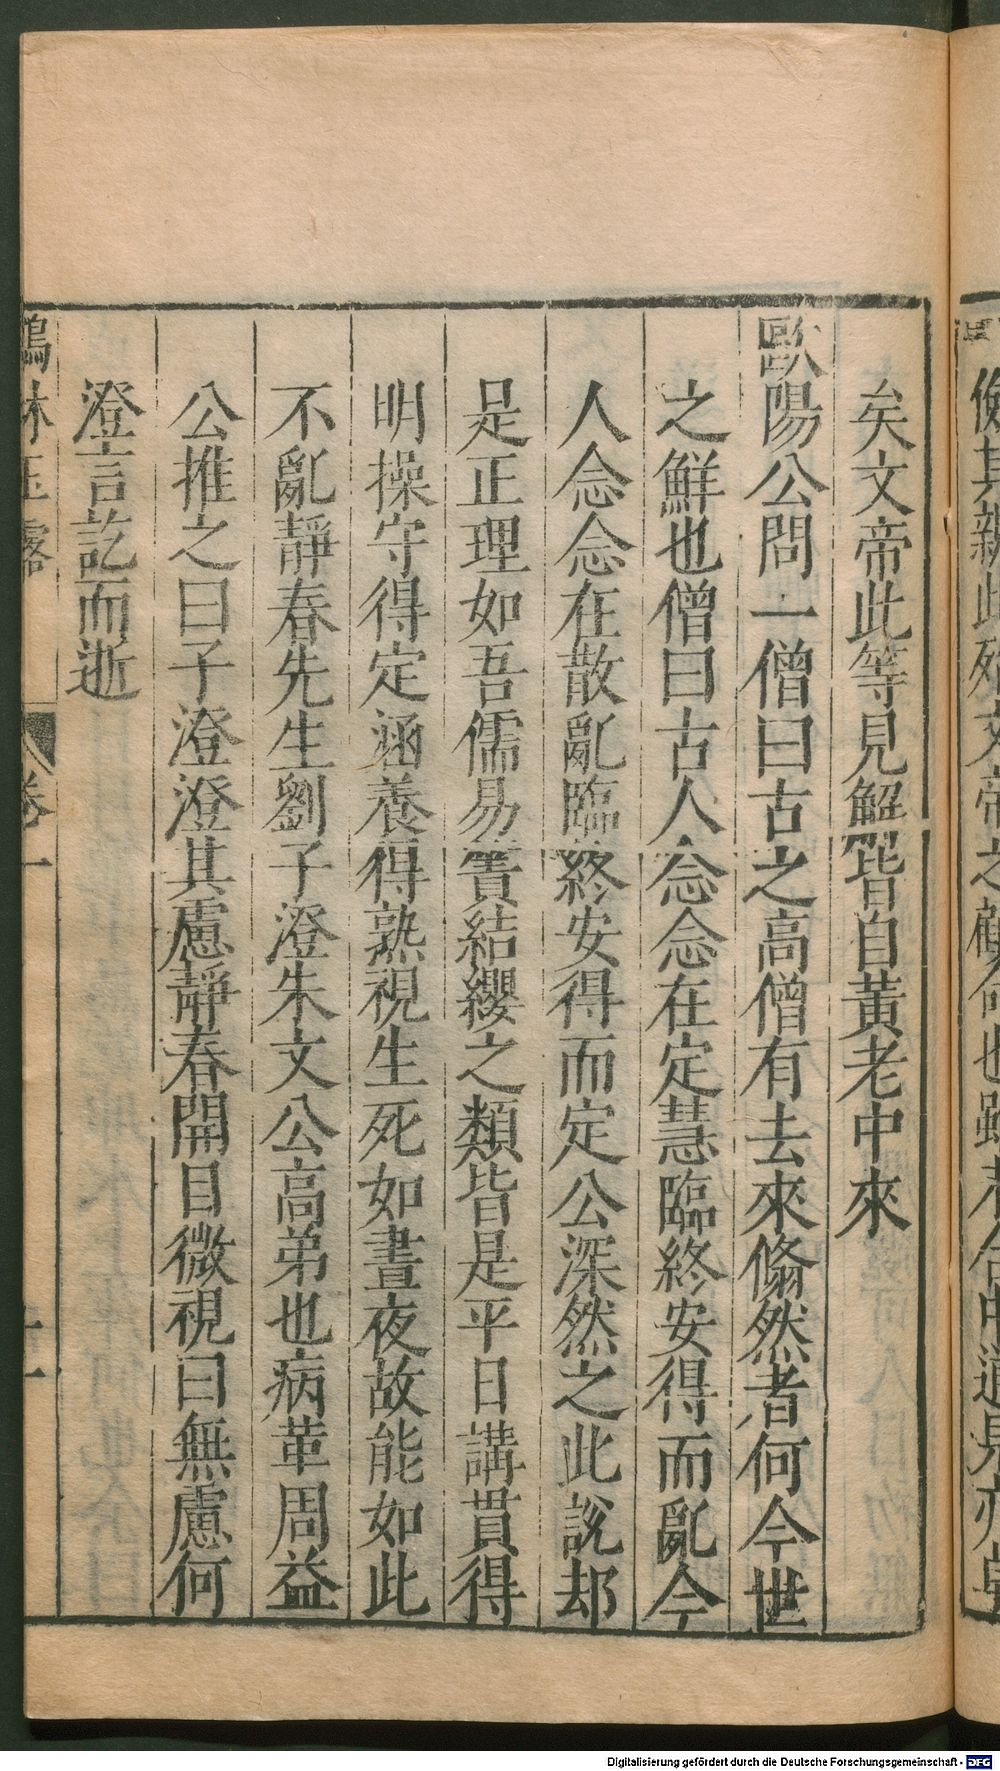 儉其親此殆文帝之顧命也雖未合中道是亦卓
矣文帝此等見解皆自黃老中來
歐陽公問一僧曰古之高僧有去來翛然者何今世
之鮮也僧曰古人念念在定慧臨終安得而亂今
人念念在散亂臨終安得而定公深然之此說却
是正理如吾儒易簀結纓之類皆是平日講貫得
明操守得定涵養得熟視生死如晝夜故能如此
不亂靜春先生劉子澄朱文公高弟也病革周益
公推之曰子澄澄其慮靜春開目微視曰無慮何
澄言訖而逝
鶴林玉露 卷一 十一
Digitalisierung gefördert durch die Deutsche Forschungsgemeinschaft - DFG